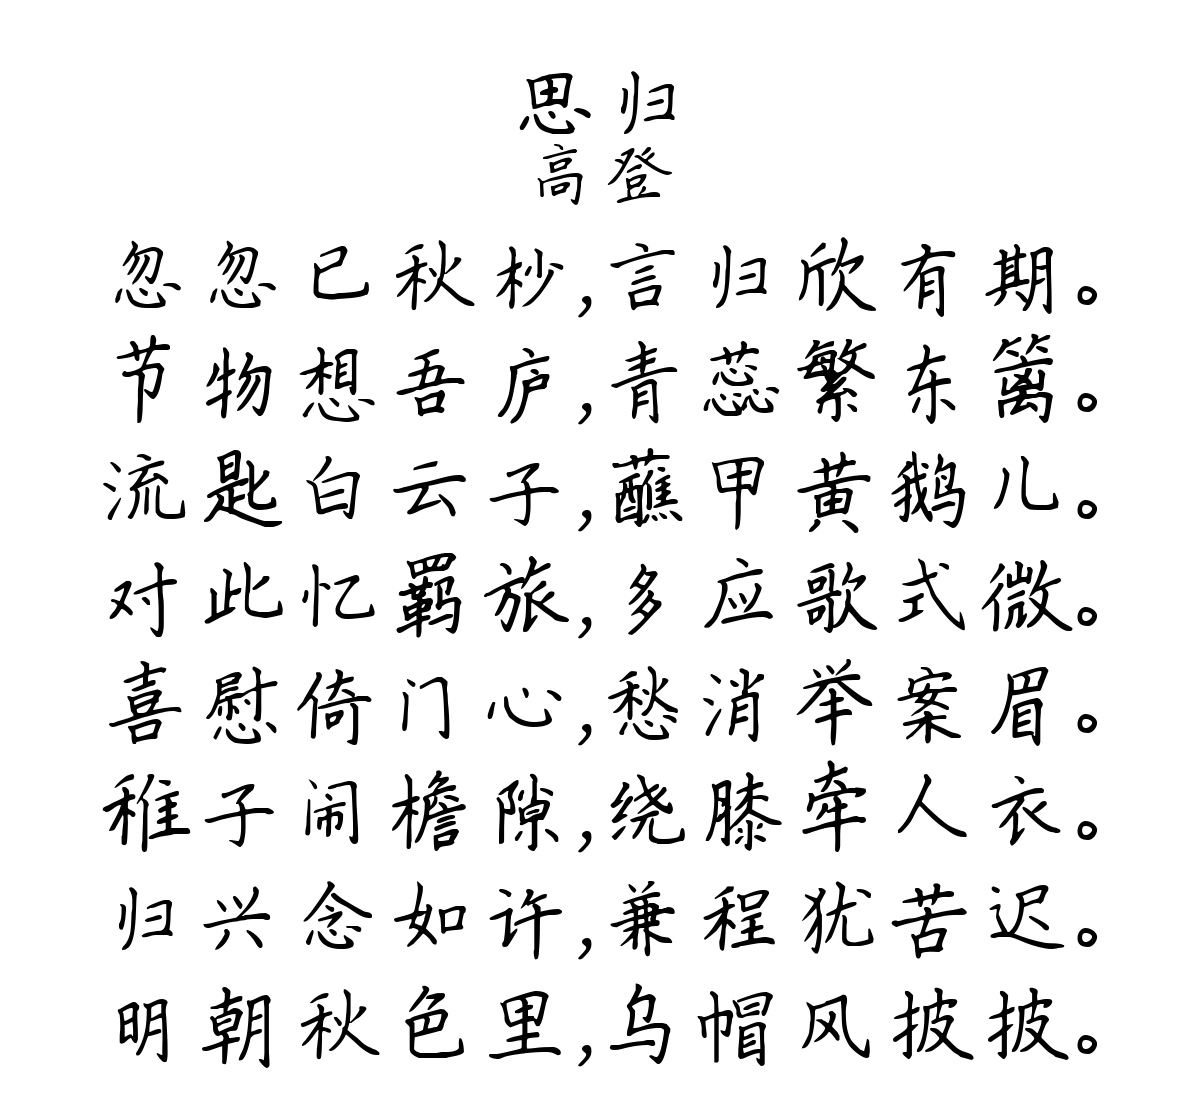 思归
高登
忽忽已秋杪,言归欣有期。
节物想吾庐,青蕊繁东篱。
流匙白云子,蘸甲黄鹅儿。
对此忆羁旅,多应歌式微。
喜慰倚门心,愁消举案眉。
稚子闹檐隙,绕膝牵人衣。
归兴念如许,兼程犹苦迟。
明朝秋色里,乌帽风披披。